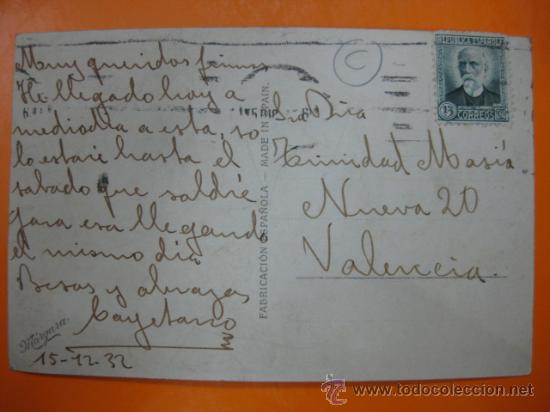 Muy queridos
He llegado hoy a
mediodia a esta, so
lo estaré hasta el
sabado que saldré
para esa llegando
el mismo dia
Besos y abrazos
Cayetano
15-12-32
Margara.
FABRICACIÓN ESPAÑOLA - MADE IN SPAIN.
C
REPUBLICA ESPAÑOLA
15 CTS
CORREOS
Trinidad Masiá
Nueva 20
Valencia.
todocoleccion
www.todocoleccion.net